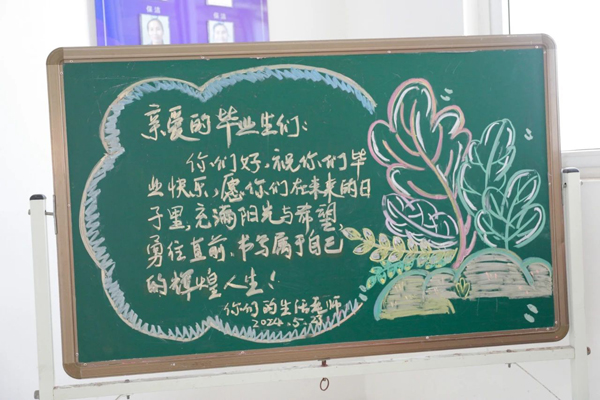 亲爱的毕业生们：
你们好，祝你们毕
业快乐，愿你们在未来的日
子里，充满阳光与希望
勇往直前、书写属于自己
的辉煌人生！
你们的生活老师
2024.5.23